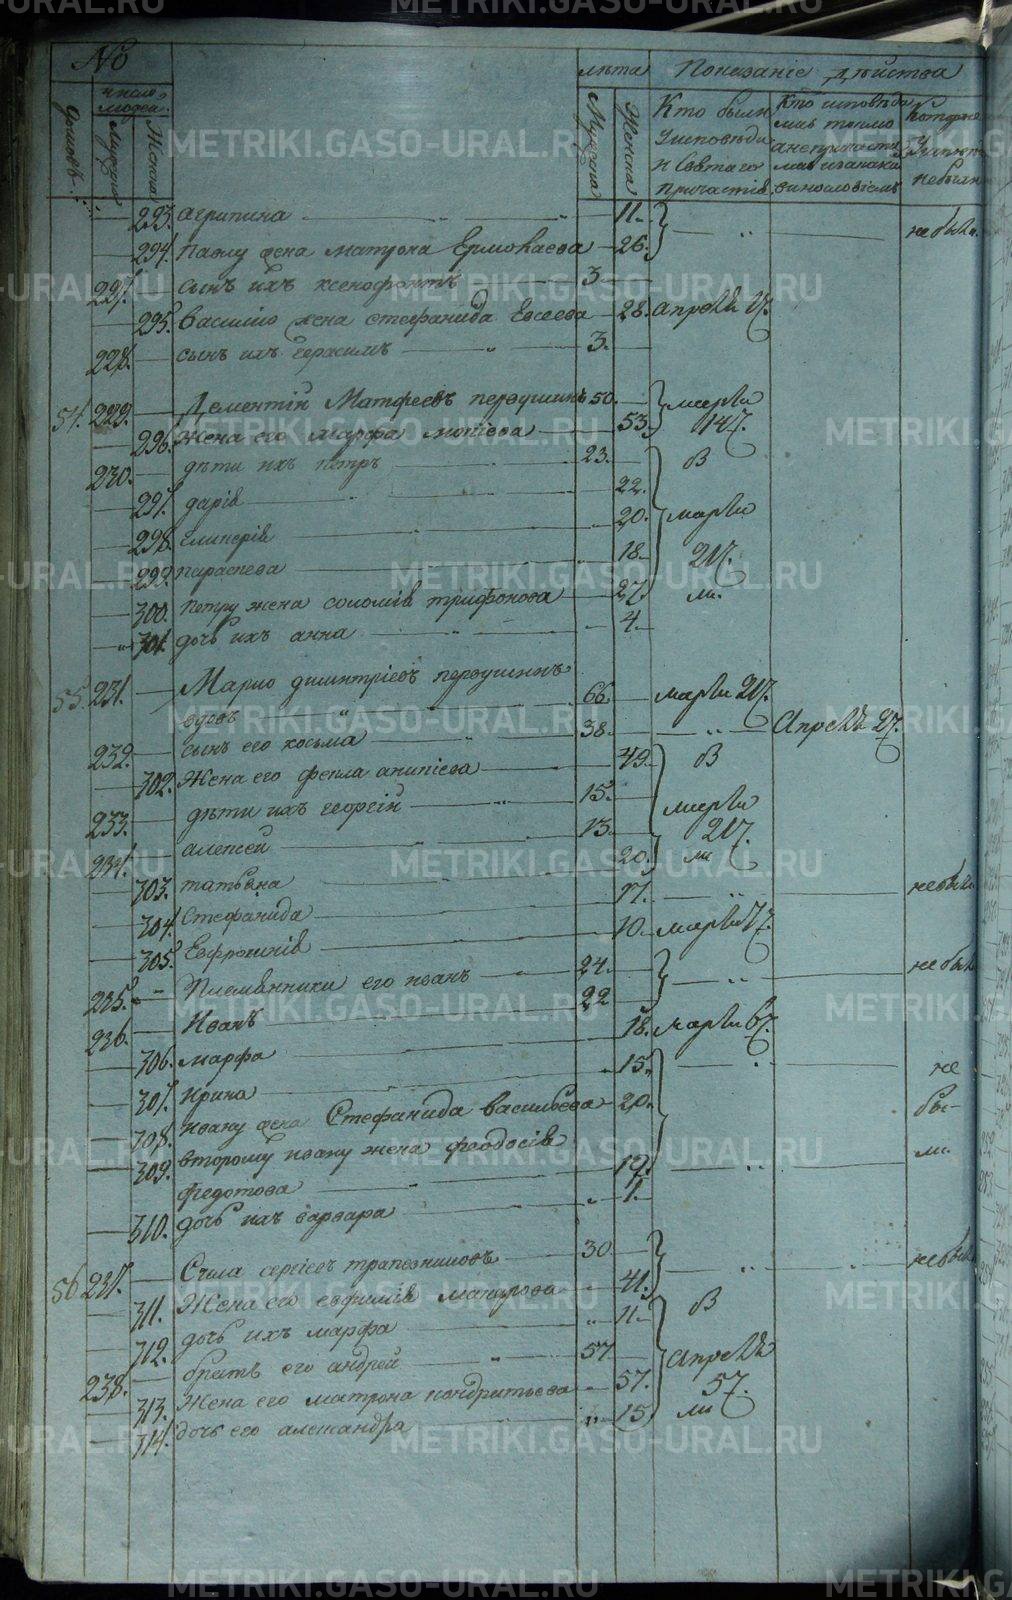 № лѣта Показаніе дѣйства
домовъ число людей. Мужеска Женска Мужеска Женска Кто были у исповѣди и Святаго причастія Кто исповѣда лись токмо а не причасти лись и за каки винословіемъ Которые у исповѣ не были
293. агрипина 11. не были
294. павлу жена матрона Ермолаева 26.
227. сынъ ихъ ксенофонтъ 3
295. василію жена стефанида Евсеева 28. Апрѣля
228. сынъ ихъ герасимъ 3.
54. 229. Дементій Матфеевъ первушинъ 50. марта
296. жена его марфа 53. 14
230. дѣти ихъ петръ 23. в
297. дарія 22.
298. гликерія 20. марта
299. параскева 18.
300. петру жена соломія трифонова 27.
301. дочь ихъ анна 4.
55. 231. Марко димитріевъ первушинъ
вдовъ 66. марта
232. сынъ его косьма 38. Апрѣля
302. жена его фекла 49. в
233. дѣти ихъ георгій 15. марта
234. алексей 13.
303. татьяна 20.
304. стефанида 17. не были
305. Евфросинія 10. марта
235. Племянники его иванъ 24. не были
236. Иванъ 22
306. марфа 18. марта
307. Ирина 15. не
308. ивану жена Стефанида васильева 20. бы-
309. второму ивану жена феодосія ли.
федотова 19.
310. дочь ихъ варвара 1.
56. 237. Сила сергеевъ трапезниковъ 30 не были
311. Жена его евфимія 41.
312. дочь ихъ марфа 11. в
238. братъ его андрей 57 Апрѣля
313. Жена его матрона кондратьева 57.
314. дочь его александра 15
METRIKI.GASO-URAL.RU